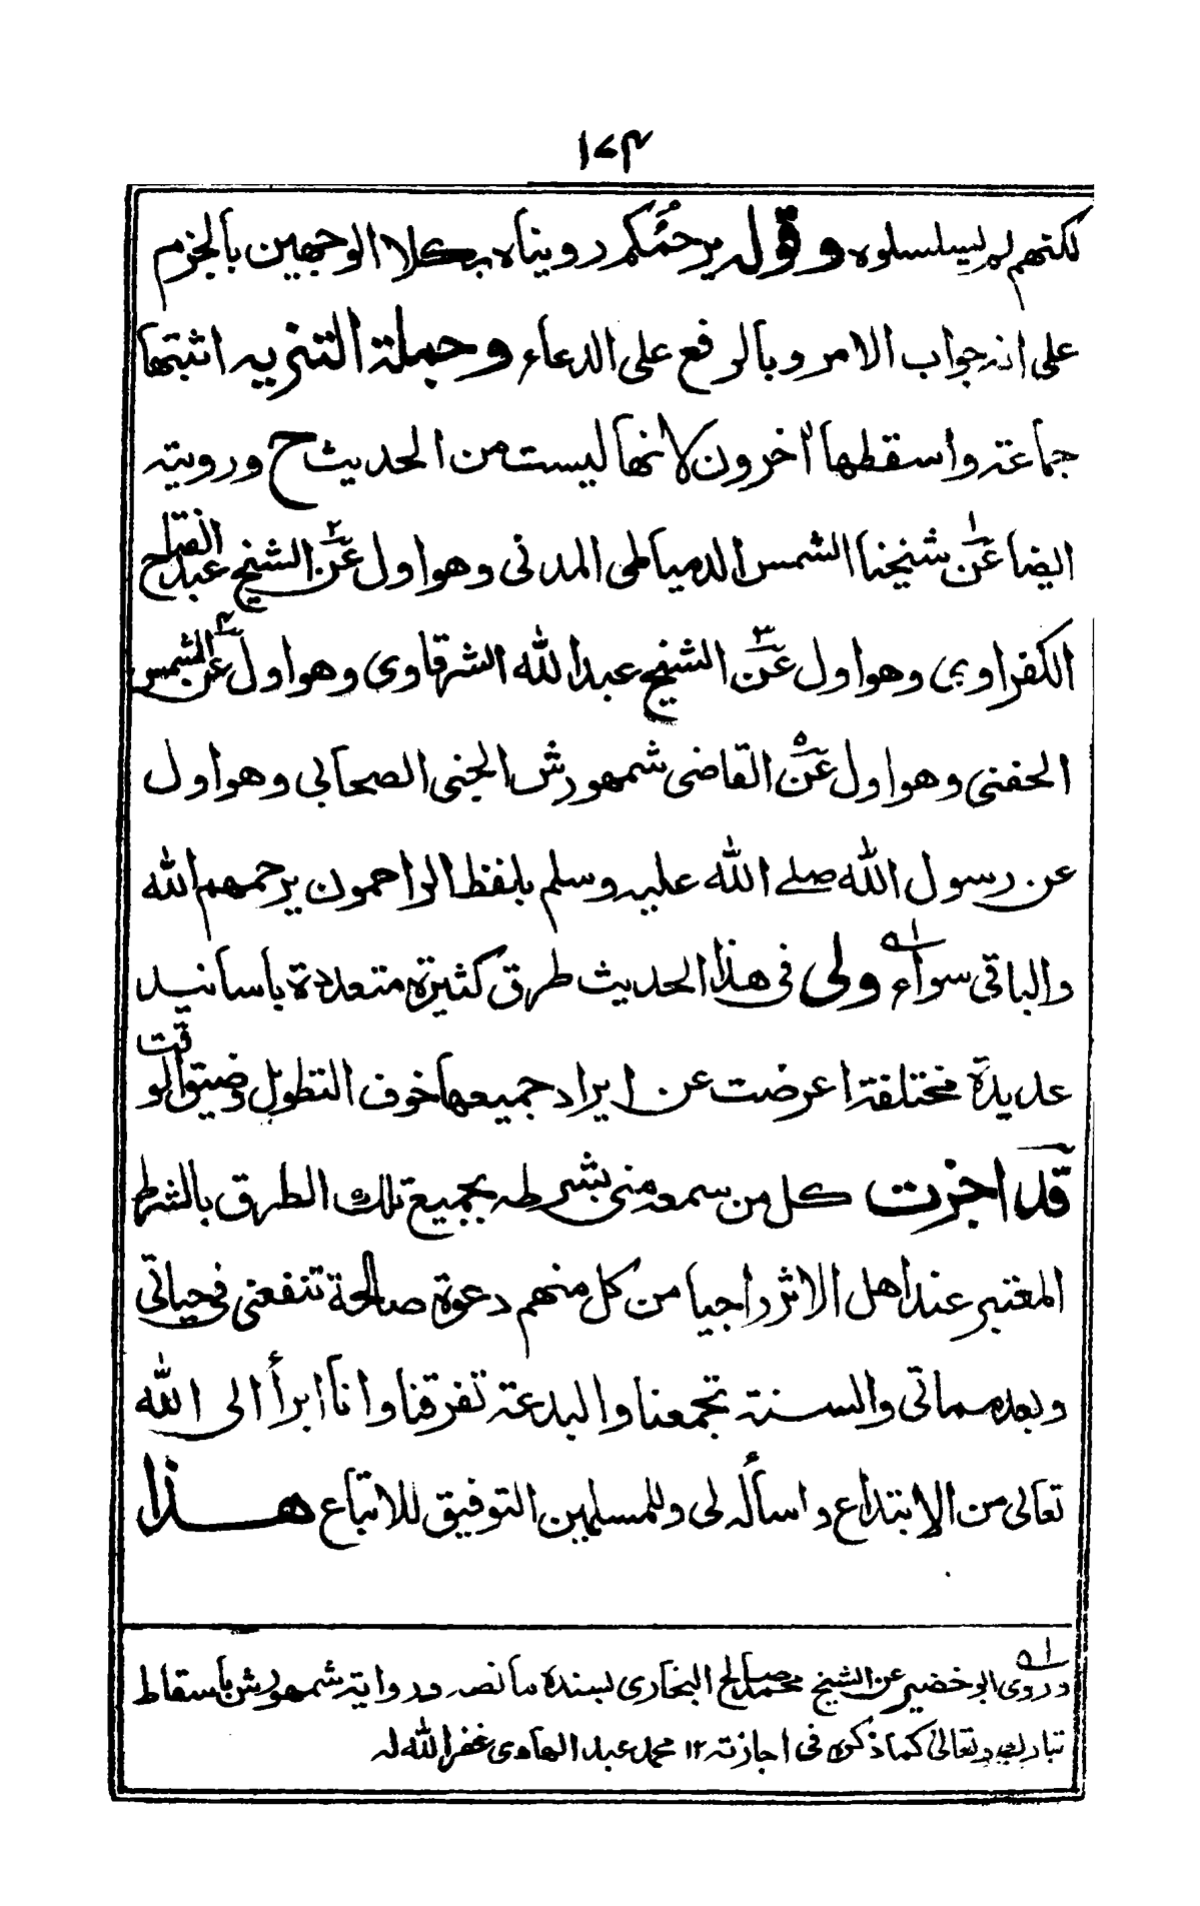 ١٧٤
لكنهم لم يسلسلوه وقوله يرحمُكم رويناه بكلا الوجهين بالجزم
على انه جواب الامر وبالرفع على الدعاء وجملة التنزيه اثبتها
جماعة واسقطها آخرون لانها ليست من الحديث ح ورويته
ايضا عن١ شيخنا الشمس الدمياطى المدنى وهو اول عن٢ الشيخ عبد الفتاح
الكفراوي وهو اول عن٣ الشيخ عبد الله الشرقاوى وهو اول عن٤ الشمس
الحفنى وهو اول عن٥ القاضى شمهورش الجنى الصحابى وهو اول
عن رسول الله صلے الله عليه وسلم بلفظ الراحمون يرحمهم الله
والباقى سواء ١ه ولى فى هذا الحديث طرق كثيرة متعددة بأسانيد
عديدة مختلفة اعرضت عن ايراد جميعها خوف التطويل وضيق الوقت
قد اجزت كل من سمعه منى بشرطه بجميع تلك الطرق بالشرط
المعتبر عند اهل الاثر راجيا من كل منهم دعوة صالحة تنفعنى فى حياتى
وبعد مماتى والسنة تجمعنا والبدعة تفرقنا وانا ابرأ الى الله
تعالى من الابتداع واسأله لى وللمسلمين التوفيق للاتباع هذا
١ه وروى ابو خضير عن الشيخ محمد صالح البخارى بسنده ما نصه ورواية شمهورش بأسقاط
تبارك وتعالى كما ذكره فى اجازته ١٢ محمد عبد الهادى غفر الله له